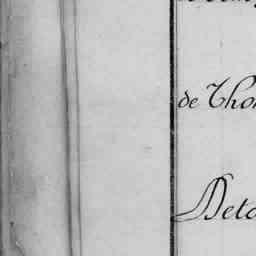 de Tho
Deta